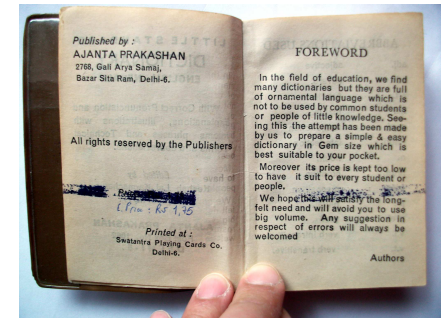 Published by :
AJANTA PRAKASHAN
2768, Gali Arya Samaj,
Bazar Sita Ram, Delhi-6.
All rights reserved by the Publishers
Rs 1,75
Printed at :
Swatantra Playing Cards Co.
Delhi-6.
FOREWORD
In the field of education, we find
many dictionaries but they are full
of ornamental language which is
not to be used by common students
or people of little knowledge. See-
ing this the attempt has been made
by us to prepare a simple & easy
dictionary in Gem size which is
best suitable to your pocket.
Moreover its price is kept too low
to have it suit to every student or
people.
We hope this will satisfy the long-
felt need and will avoid you to use
big volume. Any suggestion in
respect of errors will always be
welcomed
Authors